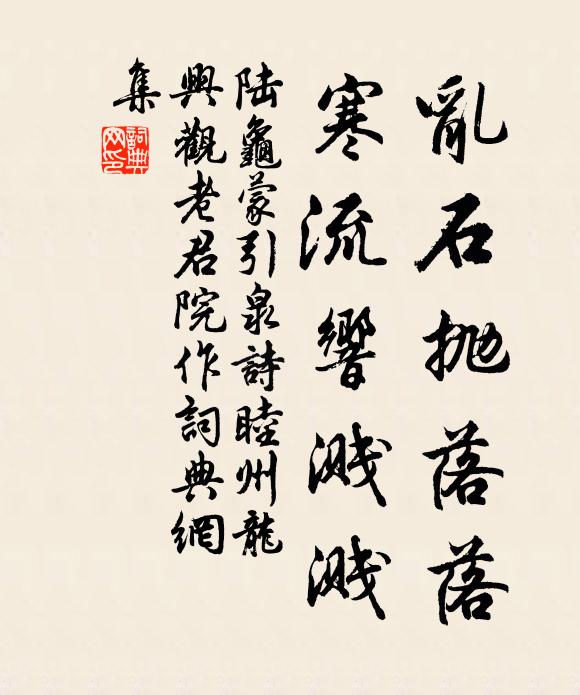 亂石拋落落
寒流響濺濺
陆龜蒙引泉詩睦州龍
興觀老君院作詞典網
集
詞典
网印